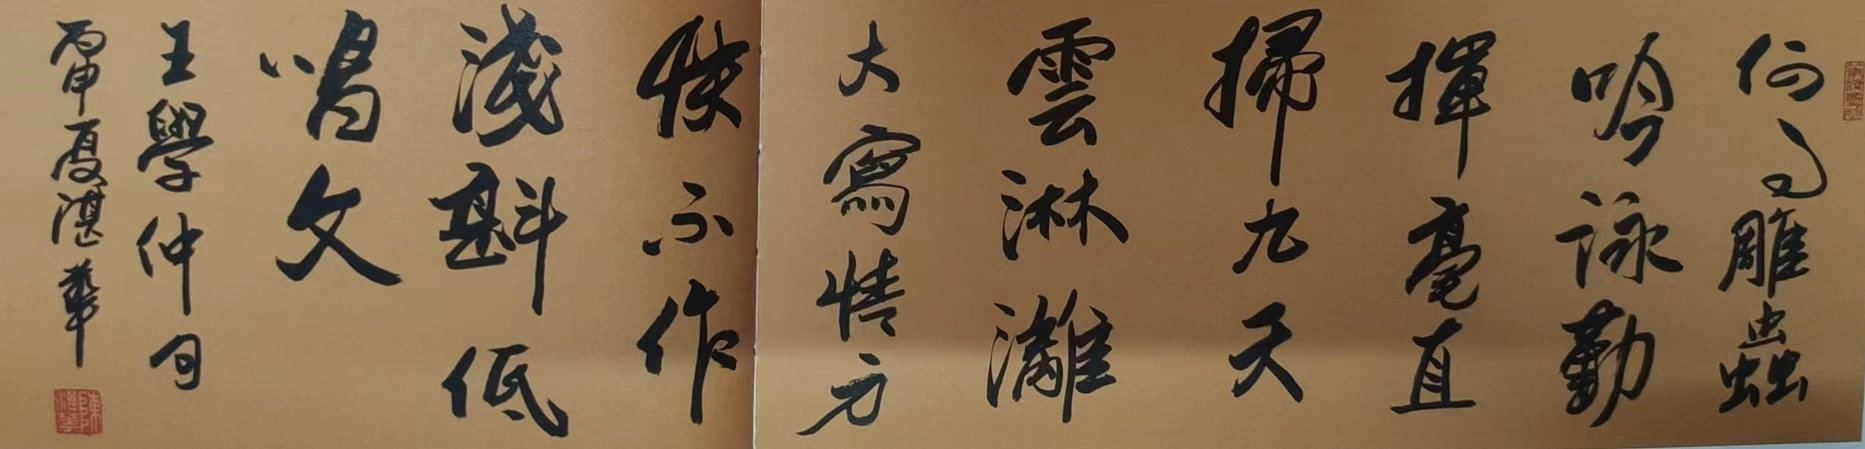 何事雕蟲
吟詠勤
揮毫直
掃九天
雲淋灕
大寫情方
快不作
淺斟低
唱文
王學仲句
丙申夏湛華